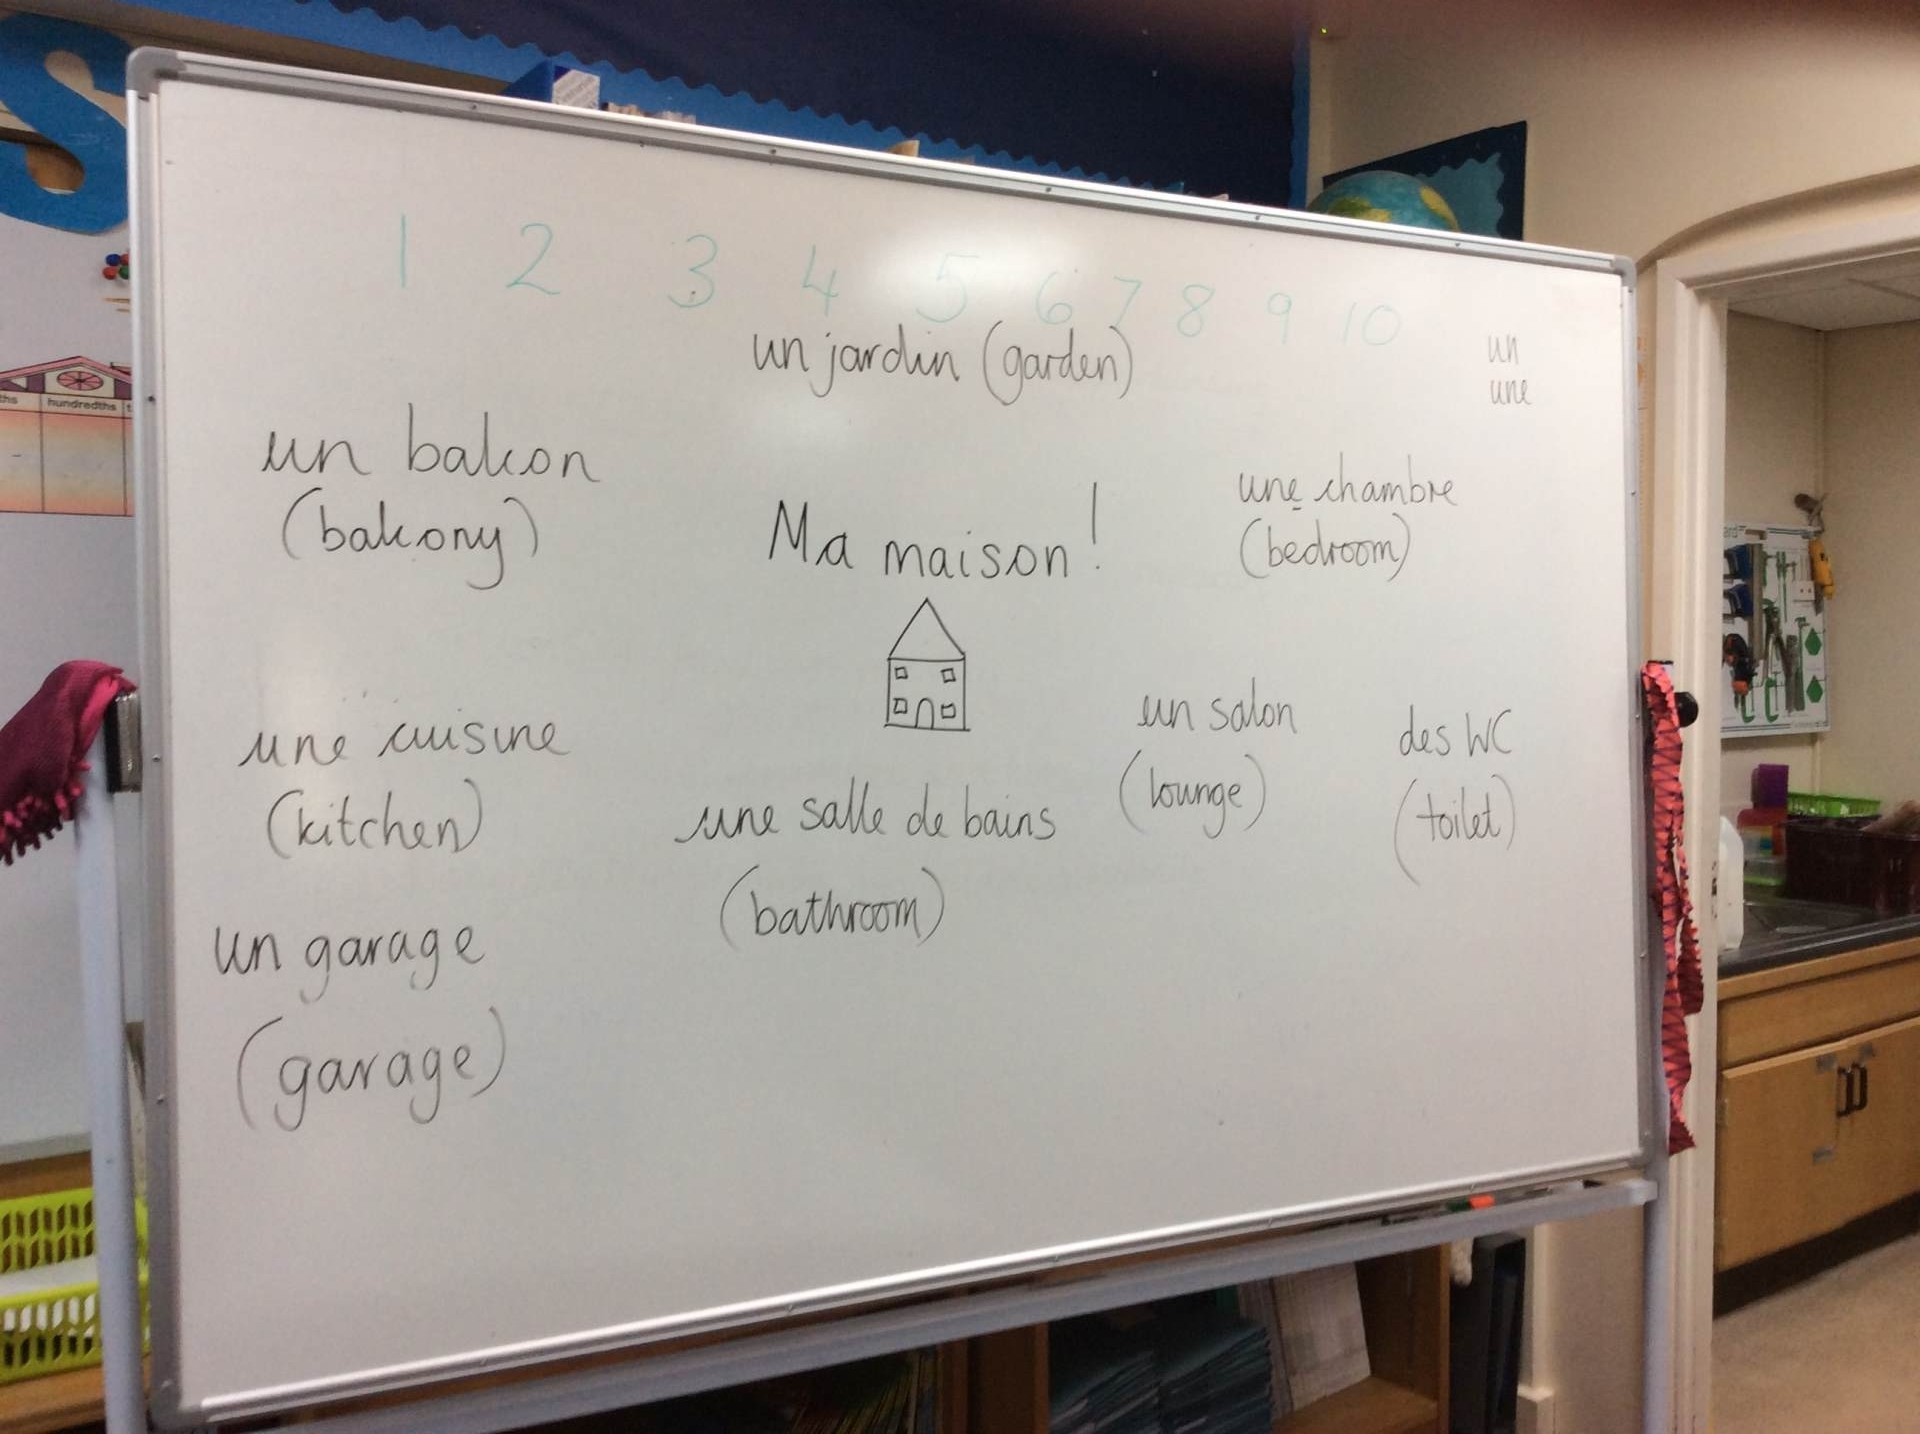 1 2 3 4 5 6 7 8 9 10
un jardin (garden)
un
une
un balcon
(balcony)
Ma maison!
une chambre
(bedroom)
une cuisine
(kitchen)
une salle de bains
(bathroom)
un salon
(lounge)
des WC
(toilet)
un garage
(garage)
hundredths